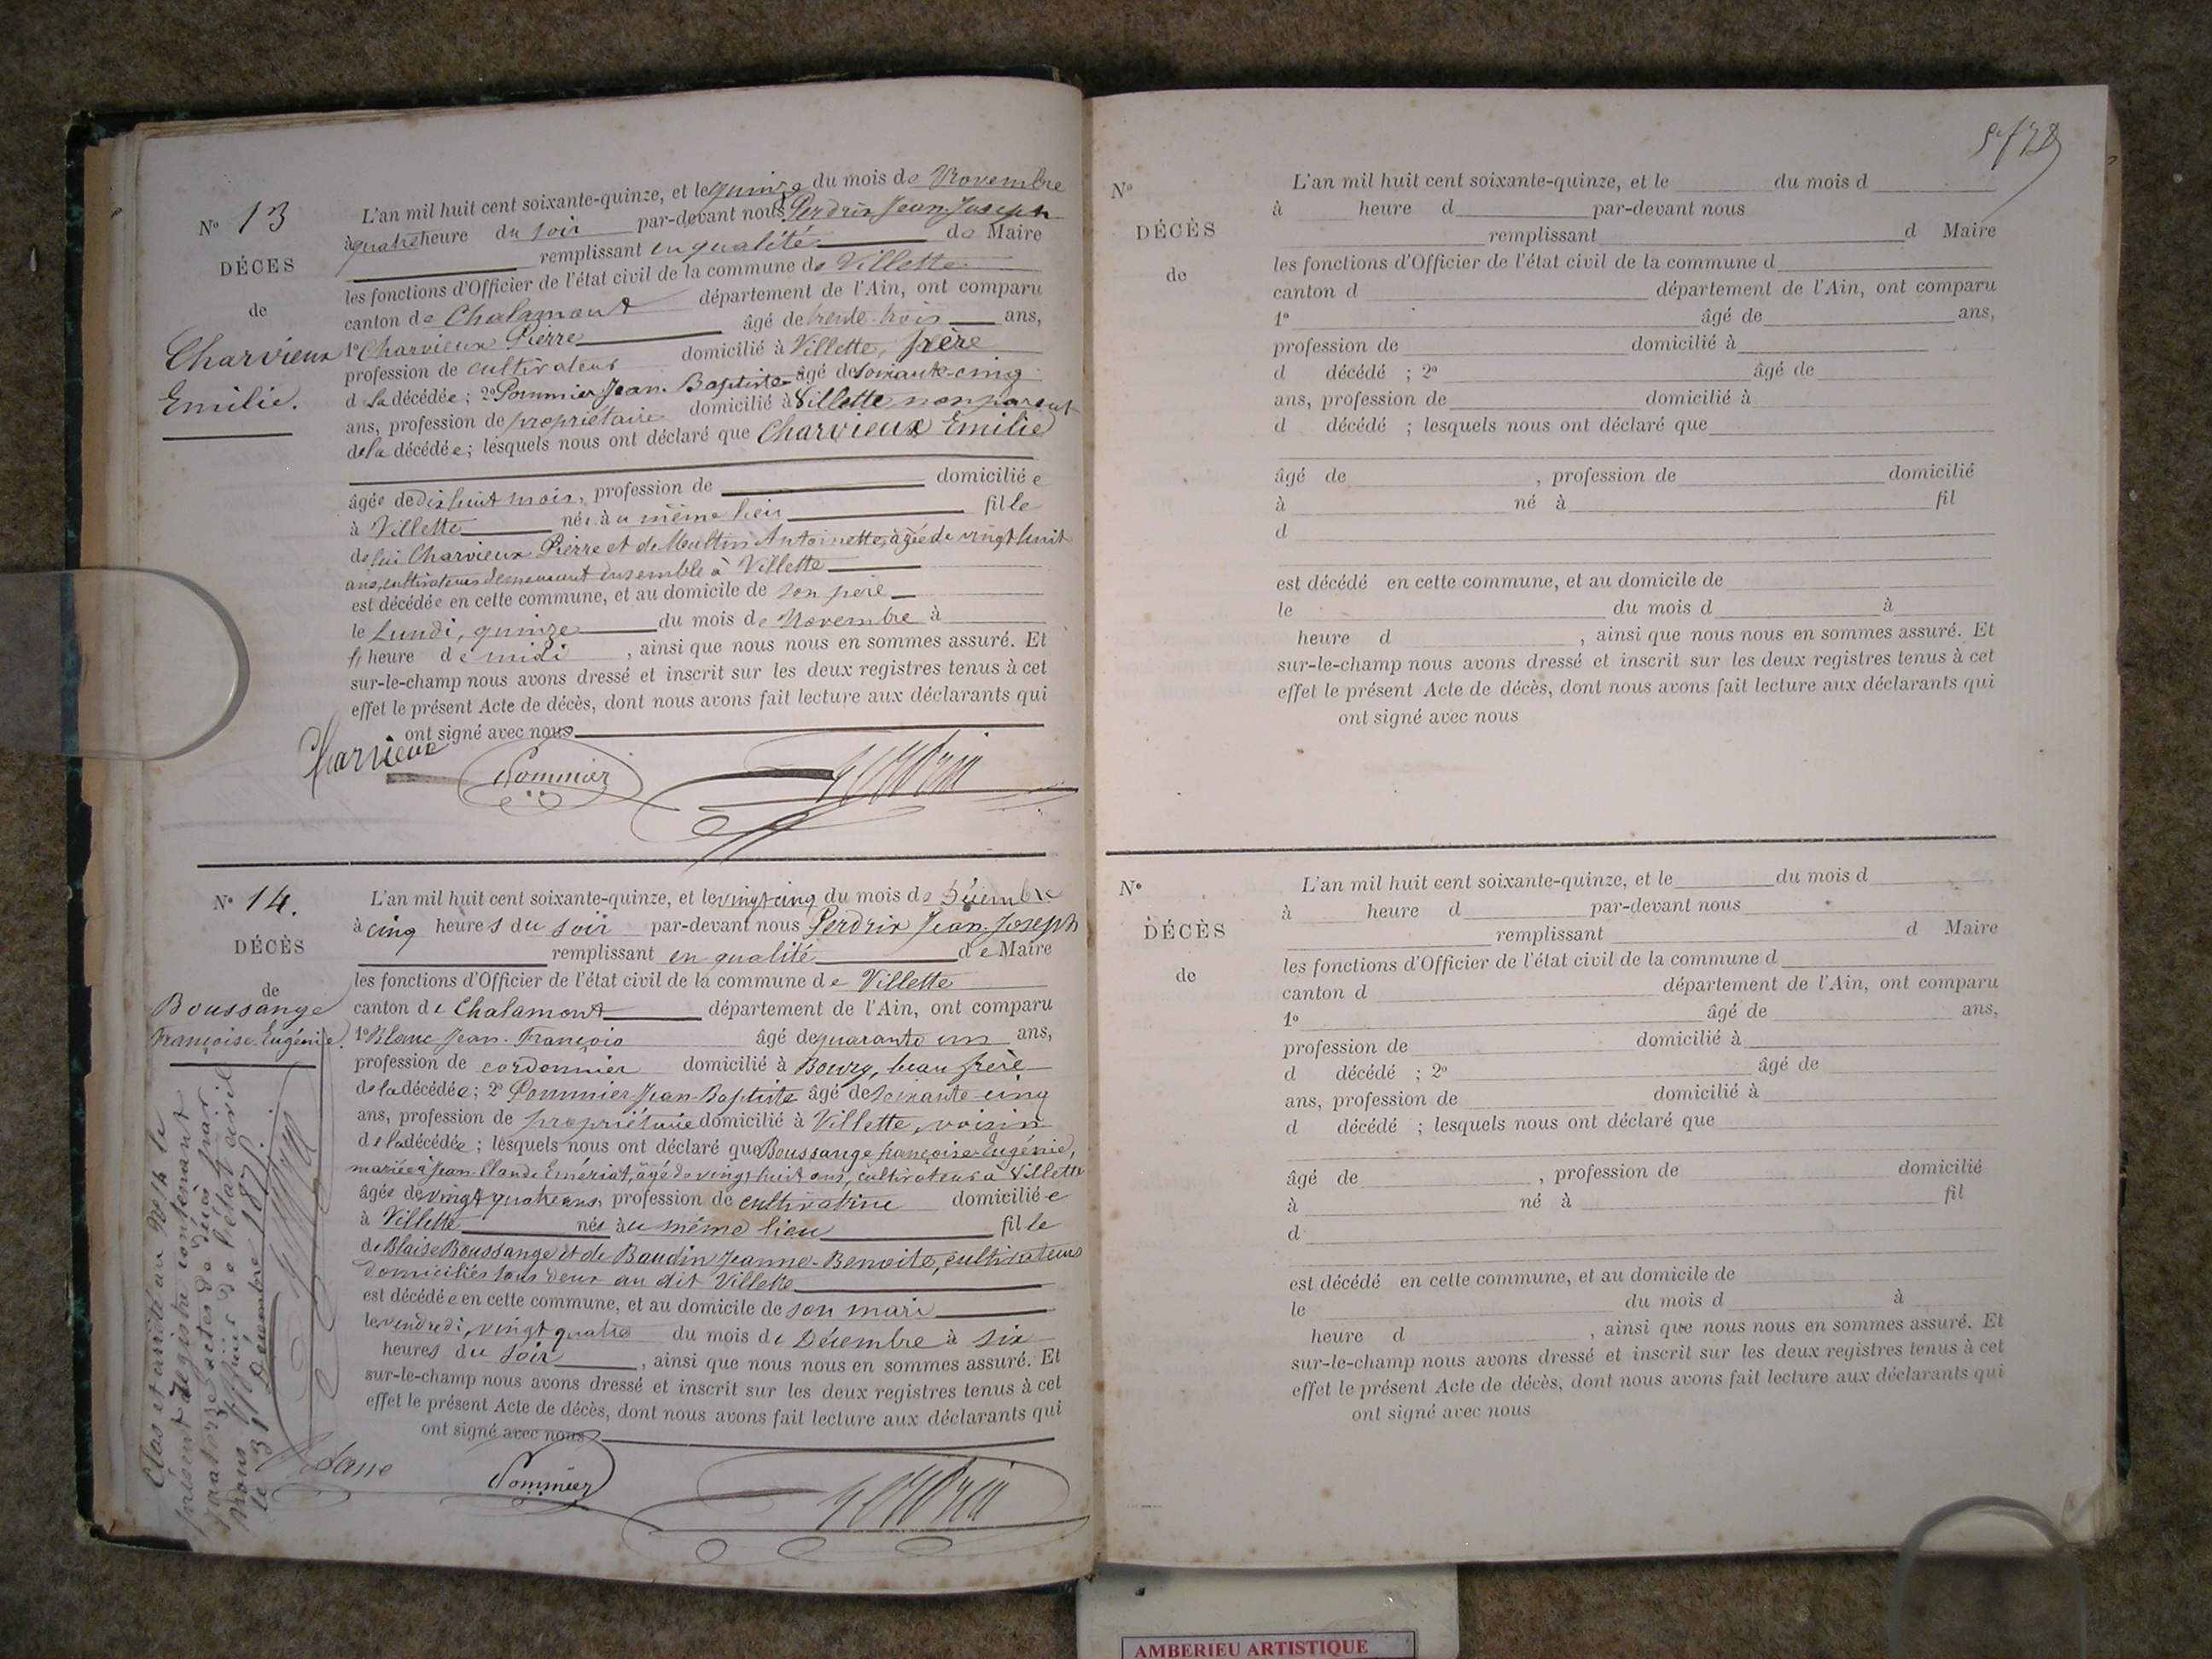 N° 13
DÉCES
de
Charvieux
Emilie.
L'an mil huit cent soixante-quinze, et le quinze du mois de Novembre
à quatre heure du soir par-devant nous Perdrix Jean Joseph
remplissant en qualité de Maire
les fonctions d'Officier de l'état civil de la commune de Villette
canton de Chalamont département de l'Ain, ont comparu
1° Charvieux Pierre âgé de trente trois ans,
profession de cultivateur domicilié à Villette, père
d la décédée ; 2° Pommier Jean-Baptiste âgé de soixante-cinq
ans, profession de propriétaire domicilié à Villette non parent
de la décédée ; lesquels nous ont déclaré que Charvieux Emilie
âgée de dix huit mois, profession de domiciliée
à Villette née au même lieu fille
de lui Charvieux Pierre et de Antoinette, âgée de vingt huit
ans, cultivateurs demeurant ensemble à Villette
est décédée en cette commune, et au domicile de son père
le Lundi, quinze du mois de Novembre à
heure de midi , ainsi que nous nous en sommes assuré. Et
sur-le-champ nous avons dressé et inscrit sur les deux registres tenus à cet
effet le présent Acte de décès, dont nous avons fait lecture aux déclarants qui
ont signé avec nous
Charvieux Pommier Perdrix
N° 14.
DÉCÈS
de
Boussange
Françoise-Eugénie.
L'an mil huit cent soixante-quinze, et le vingt cinq du mois de Décembre
à cinq heures du soir par-devant nous Perdrix Jean-Joseph
remplissant en qualité de Maire
les fonctions d'Officier de l'état civil de la commune de Villette
canton de Chalamont département de l'Ain, ont comparu
1° Blanc Jean-François âgé de quarante un ans,
profession de cordonnier domicilié à Bourg, beau frère
de la décédée ; 2° Pommier Jean-Baptiste âgé de soixante-cinq
ans, profession de propriétaire domicilié à Villette, voisin
de la décédée ; lesquels nous ont déclaré que Boussange françoise-Eugénie,
mariée à Jean-Claude Emériat, âgé de vingt huit ans, cultivateur à Villette
âgée de vingt quatre ans, profession de cultivatrice domiciliée
à Villette née au même lieu fille
de Blaise Boussange et de Baudin Jeanne-Benoite, cultivateurs
domiciliés tous deux au dit Villette
est décédée en cette commune, et au domicile de son mari
le vendredi, vingt quatre du mois de Décembre à six
heures du soir , ainsi que nous nous en sommes assuré. Et
sur-le-champ nous avons dressé et inscrit sur les deux registres tenus à cet
effet le présent Acte de décès, dont nous avons fait lecture aux déclarants qui
ont signé avec nous
Blanc Pommier Perdrix
Clos et arrêté au N° 14 le
présent Registre contenant
quatorze actes de décès par
nous officier de l'état civil
le 31 Décembre 1875.
N°
DÉCÈS
de
L'an mil huit cent soixante-quinze, et le du mois d
à heure d par-devant nous
remplissant d Maire
les fonctions d'Officier de l'état civil de la commune d
canton d département de l'Ain, ont comparu
1° âgé de ans,
profession de domicilié à
d décédé ; 2° âgé de
ans, profession de domicilié à
d décédé ; lesquels nous ont déclaré que
âgé de , profession de domicilié
à né à fil
d
est décédé en cette commune, et au domicile de
le du mois d à
heure d , ainsi que nous nous en sommes assuré. Et
sur-le-champ nous avons dressé et inscrit sur les deux registres tenus à cet
effet le présent Acte de décès, dont nous avons fait lecture aux déclarants qui
ont signé avec nous
N°
DÉCÈS
de
L'an mil huit cent soixante-quinze, et le du mois d
à heure d par-devant nous
remplissant d Maire
les fonctions d'Officier de l'état civil de la commune d
canton d département de l'Ain, ont comparu
1° âgé de ans,
profession de domicilié à
d décédé ; 2° âgé de
ans, profession de domicilié à
d décédé ; lesquels nous ont déclaré que
âgé de , profession de domicilié
à né à fil
d
est décédé en cette commune, et au domicile de
le du mois d à
heure d , ainsi que nous nous en sommes assuré. Et
sur-le-champ nous avons dressé et inscrit sur les deux registres tenus à cet
effet le présent Acte de décès, dont nous avons fait lecture aux déclarants qui
ont signé avec nous
AMBERIEU ARTISTIQUE